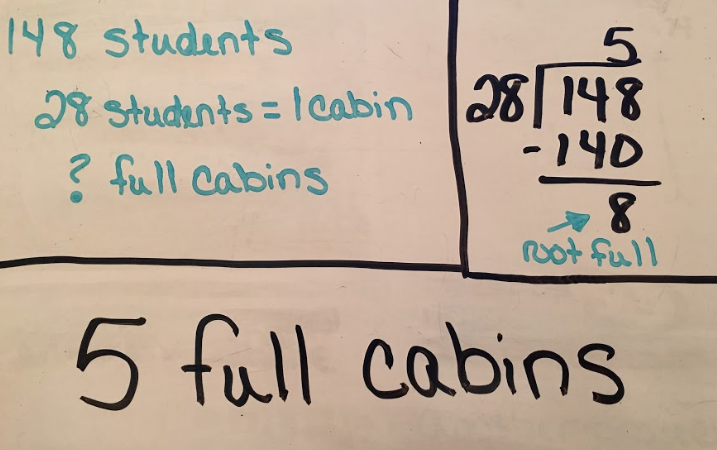 148 students
28 students = 1 cabin
? full cabins
5
28 148
-140
8
not full
5 full cabins